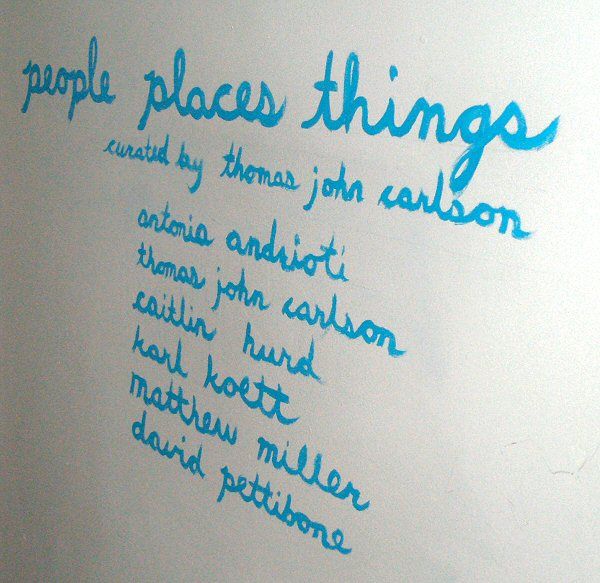 people places things
curated by thomas john carlson
antonia andrioti
thomas john carlson
caitlin hurd
karl koett
matthew miller
david pettibone